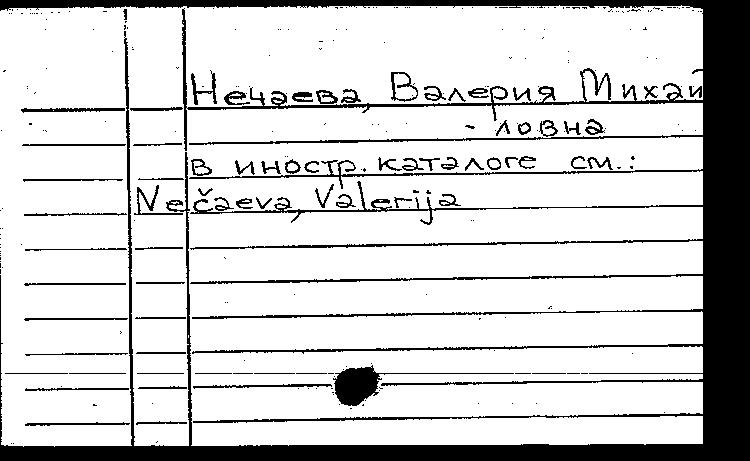 Нечаева, Валерия Михай
-ловна
в иностр. каталоге см.:
Nečaeva, Valerija